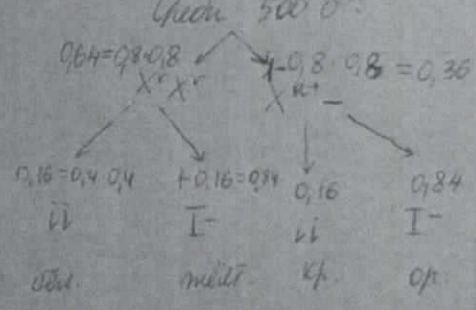 Среди 500 о
0,64=0,8·0,8 1-0,8·0,8=0,36
XʳXʳ Xᴿ⁺ –
0,16=0,4·0,4 1-0,16=0,84 0,16 0,84
ii I– ii I–
бел. жёлт. кр. ор.